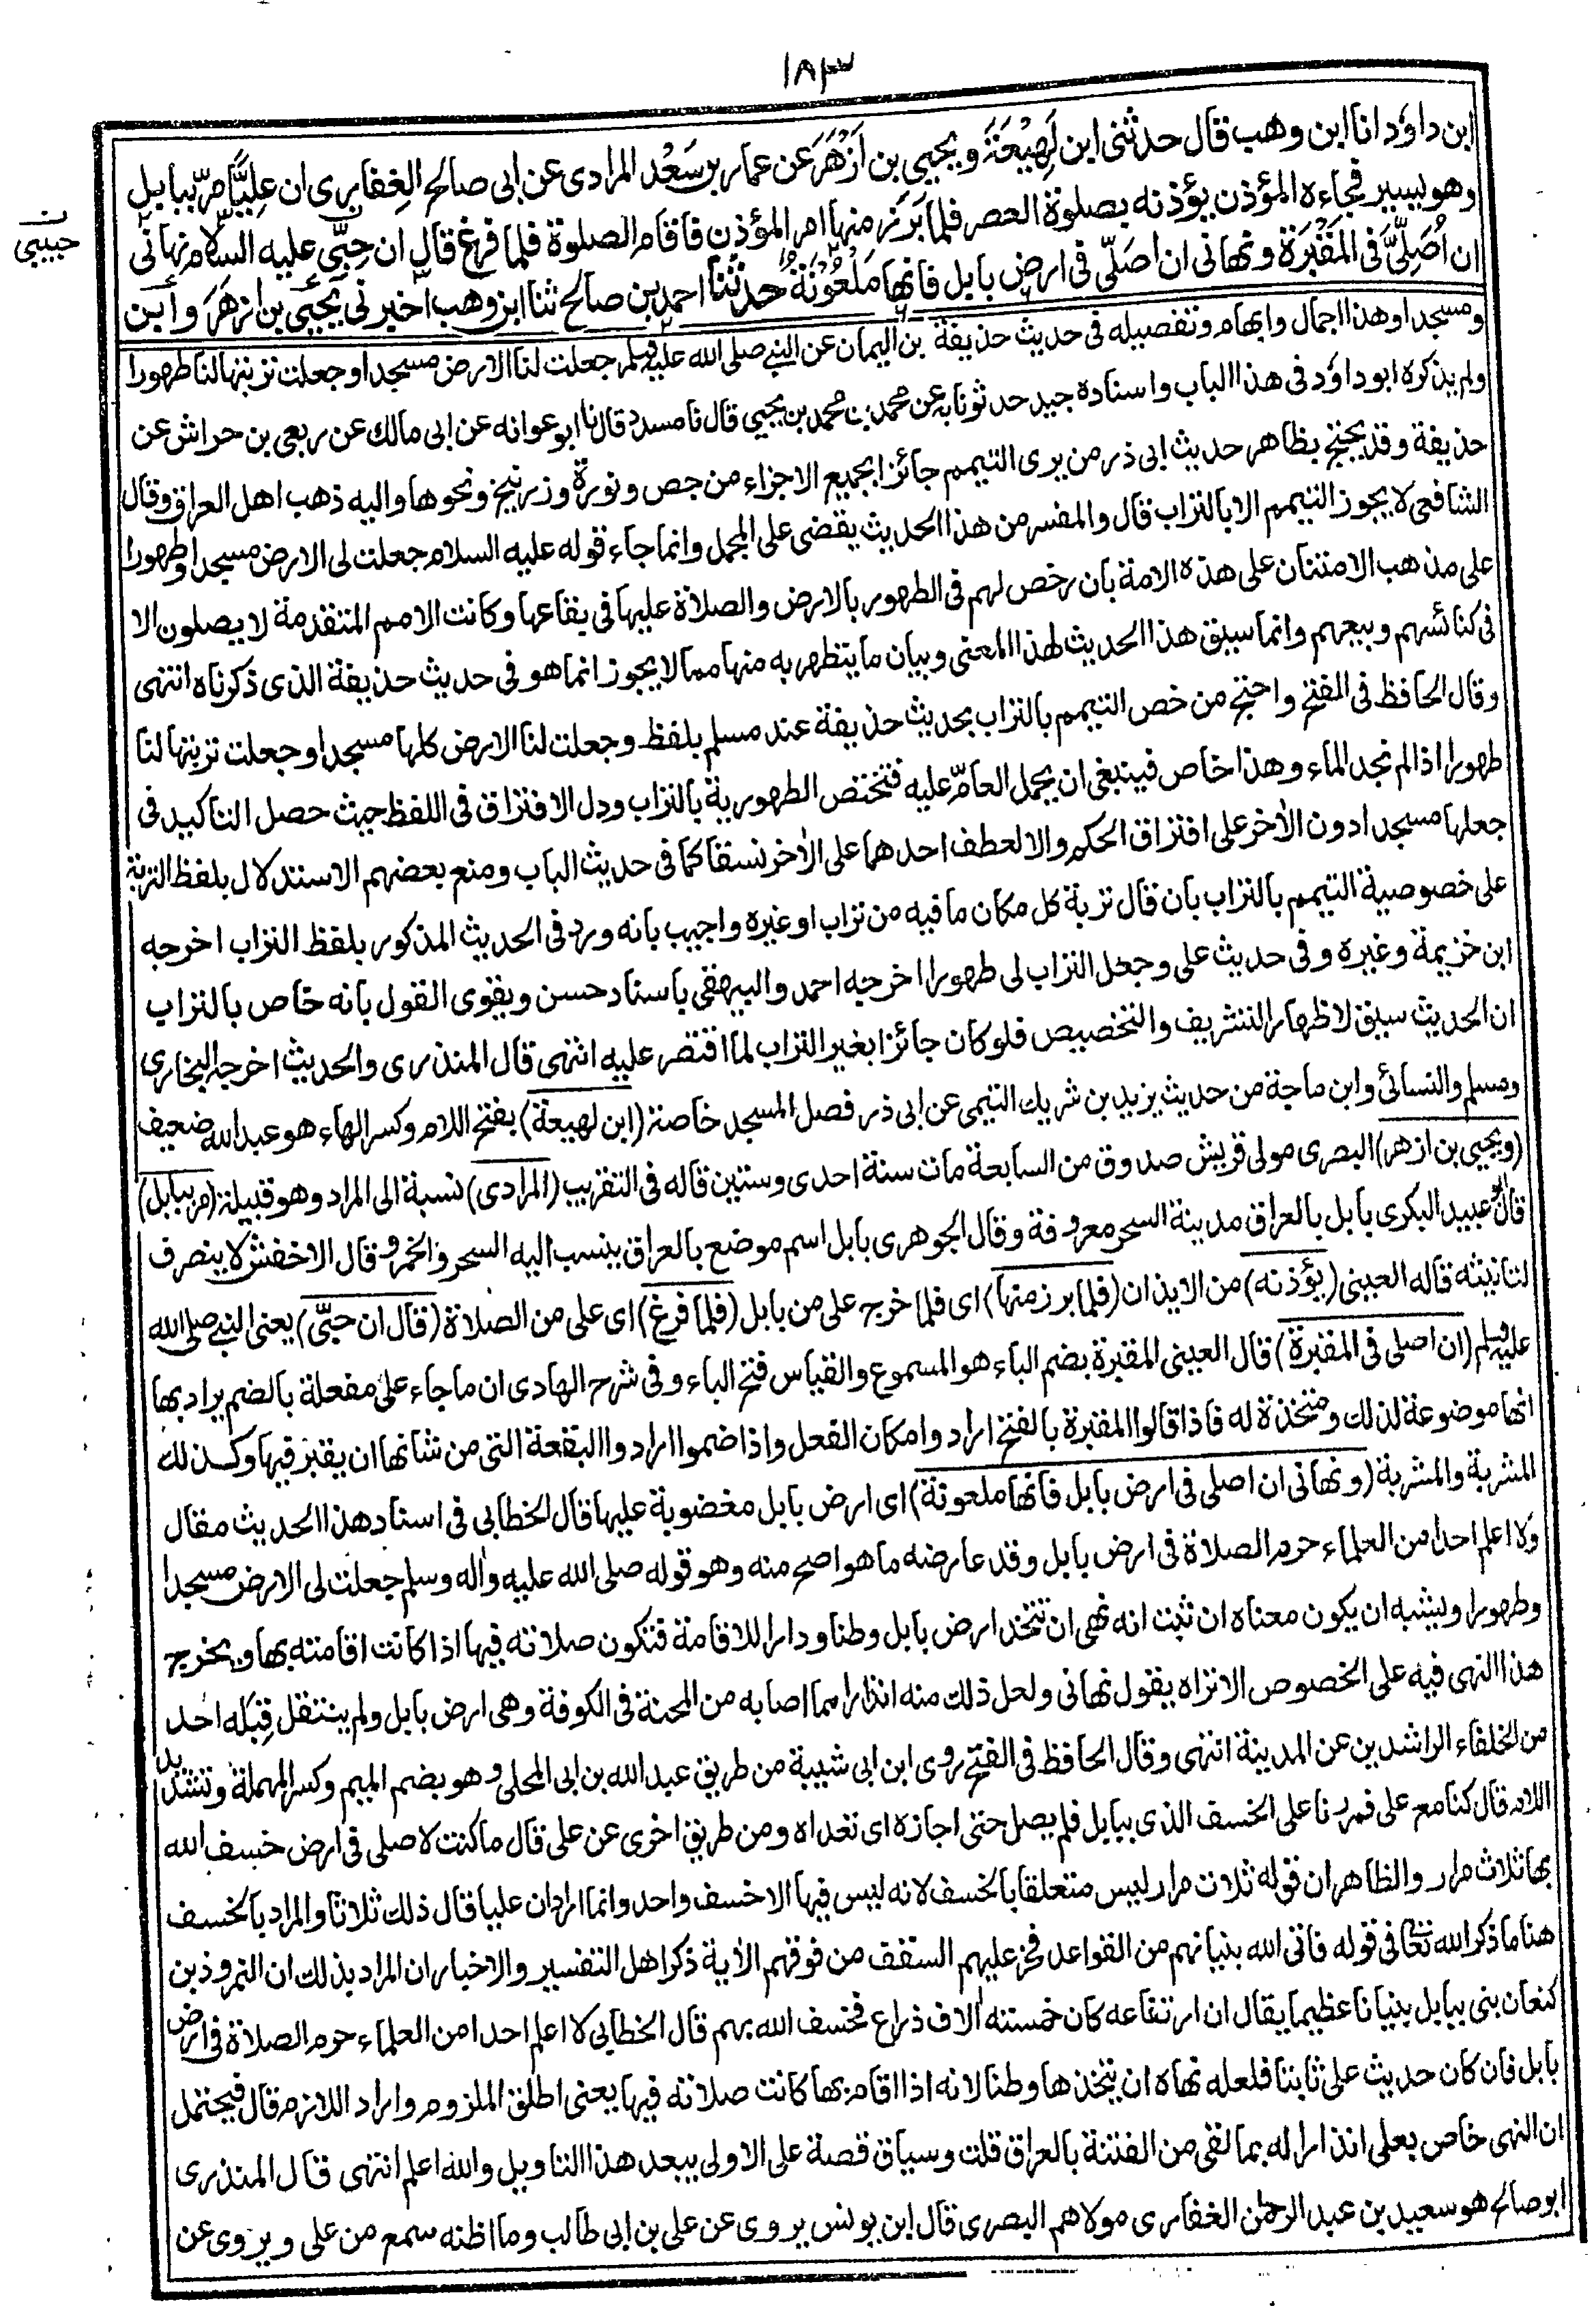 ١٨٣
ابن داؤد انا ابن وهب قال حدثنى ابن لَهِيْعَةَ ويحيى بن اَزْهَرَ عن عمار بن سَعْد المرادى عن ابى صالح الغِفارى ان عليًّا مرّ ببابل
وهو يسير فجاءه المؤذن يؤذنه بصلوة العصر فلما بَرَزَ منها امر المؤذن فاقام الصلوة فلما فرغ قال ان حِبِّى عليه السلام نهانى
ن
حبيبى
ان اُصَلِّىَ فى المَقْبُرَة ونهانى ان اصَلّى فى ارض بابل فانها مَلْعُوْنَةٌ حدثنا احمد بن صالح ثنا ابن وهب اخبرنى يحيى بن ازهَرَ وابن
ومسجدا وهذا اجمال وابهام وتفصيله فى حديث حذيفة بن اليمان عن النبى صلى الله عليه وسلم جعلت لنا الارض مسجدا وجعلت تربتها لنا طهورا
ولم يذكره ابو داؤد فى هذا الباب واسناده جيد حدثونا به عن محمد بن محمد بن يحيى قال نا مسدد قال نا ابو عوانه عن ابى مالك عن ربعى بن حراش عن
حذيفة وقد يحتج بظاهر حديث ابى ذر من يرى التيمم جائزا بجميع الاجزاء من جص ونورة وزرنيخ ونحوها واليه ذهب اهل العراق وقال
الشافعى لا يجوز التيمم الا بالتراب قال والمفسر من هذا الحديث يقضى على المجمل وانما جاء قوله عليه السلام جعلت لى الارض مسجدا وطهورا
على مذهب الامتنان على هذه الامة بان رخص لهم فى الطهور بالارض والصلاة عليها فى بقاعها وكانت الامم المتقدمة لا يصلون الا
فى كنائسهم وبيعهم وانما سيق هذا الحديث لهذا المعنى وبيان ما يتطهر به منها مما لا يجوز انما هو فى حديث حذيفة الذى ذكرناه انتهى
وقال الحافظ فى الفتح واحتج من خص التيمم بالتراب بحديث حذيفة عند مسلم بلفظ وجعلت لنا الارض كلها مسجدا وجعلت تربتها لنا
طهورا اذا لم نجد الماء وهذا خاص فينبغى ان يحمل العامّ عليه فتختص الطهورية بالتراب ودل الافتراق فى اللفظ حيث حصل التاكيد فى
جعلها مسجدا دون الاٰخر على افتراق الحكم والا لعطف احدهما على الاٰخر نسقا كما فى حديث الباب ومنع بعضهم الاستدلال بلفظ التربة
على خصوصية التيمم بالتراب بان قال تربة كل مكان ما فيه من تراب او غيره واجيب بانه ورد فى الحديث المذكور بلفظ التراب اخرجه
ابن خزيمة وغيره وفى حديث على وجعل التراب لى طهورا اخرجه احمد والبيهقى باسناد حسن ويقوى القول بانه خاص بالتراب
ان الحديث سيق لاظهار التشريف والتخصيص فلو كان جائزا بغير التراب لما اقتصر عليه انتهى قال المنذرى والحديث اخرجه البخارى
ومسلم والنسائى وابن ماجة من حديث يزيد بن شريك التيمى عن ابى ذر فصل المسجد خاصة (ابن لهيعة) بفتح اللام وكسر الهاء هو عبدالله ضعيف
(ويحيى بن ازهر) البصرى مولى قريش صدوق من السابعة مات سنة احدى وستين قاله فى التقريب (المرادى) نسبة الى المراد وهو قبيلة (مر ببابل)
قال ابو عبيد البكرى بابل بالعراق مدينة السحر معروفة وقال الجوهرى بابل اسم موضع بالعراق ينسب اليه السحر والخمر و قال الاخفش لا ينصرف
لتانيثه قاله العينى (يؤذنه) من الايذان (فلما برز منها) اى فلما خرج على من بابل (فلما فرغ) اى على من الصلاة (قال ان حبّى) يعنى النبى صلى الله
عليه وسلم (ان اصلى فى المقبرة) قال العينى المقبرة بضم الباء هو المسموع والقياس فتح الباء وفى شرح الهادى ان ما جاء على مفعلة بالضم يراد بها
انها موضوعة لذلك ومتخذة له فاذا قالوا المقبرة بالفتح ارادوا مكان الفعل واذا ضموا ارادوا البقعة التى من شانها ان يقبر فيها وكذلك
المشربة والمشربة (ونهانى ان اصلى فى ارض بابل فانها ملعونة) اى ارض بابل مغضوبة عليها قال الخطابى فى اسناد هذا الحديث مقال
ولا اعلم احدا من العلماء حرم الصلاة فى ارض بابل وقد عارضه ما هو اصح منه وهو قوله صلى الله عليه واٰله وسلم جعلت لى الارض مسجدا
وطهورا ويشبه ان يكون معناه ان ثبت انه نهى ان تتخذ ارض بابل وطنا ودارا للاقامة فتكون صلاته فيها اذا كانت اقامته بها ويخرج
هذا النهى فيه على الخصوص الا تراه يقول نهانى ولعل ذلك منه انذار مما اصابه من المحنة فى الكوفة وهى ارض بابل ولم ينتقل قبله احد
من الخلفاء الراشدين عن المدينة انتهى وقال الحافظ فى الفتح روى ابن ابى شيبة من طريق عبد الله بن ابى المحلى وهو بضم الميم وكسر المهملة وتشديد
اللام قال كنا مع على فمررنا على الخسف الذى ببابل فلم يصل حتى اجازه اى تعداه ومن طريق اخرى عن على قال ما كنت لاصلى فى ارض خسف الله
بها ثلاث مرار والظاهر ان قوله ثلاث مرار ليس متعلقا بالخسف لانه ليس فيها الا خسف واحد وانما اراد ان عليا قال ذلك ثلاثا والمراد بالخسف
هنا ما ذكر الله تعالى فى قوله فاتى الله بنيانهم من القواعد فخر عليهم السقف من فوقهم الاٰية ذكر اهل التفسير والاخبار ان المراد بذلك ان النمروذ بن
كنعان بنى ببابل بنيانا عظيما يقال ان ارتفاعه كان خمسته اٰلاف ذراع فخسف الله بهم قال الخطابى لا اعلم احدا من العلماء حرم الصلاة فى ارض
بابل فان كان حديث على ثابتا فلعله نهاه ان يتخذها وطنا لانه اذا اقام بها كانت صلاته فيها يعنى اطلق الملزوم واراد اللازم قال فيحتمل
ان النهى خاص بعلى انذارا له بما لقى من الفتنة بالعراق قلت وسياق قصة على الاولى يبعد هذا التاويل والله اعلم انتهى قال المنذرى
ابو صالح هو سعيد بن عبد الرحمٰن الغفارى مولاهم البصرى قال ابن يونس يروى عن على بن ابى طالب وما اظنه سمع من على ويروى عن